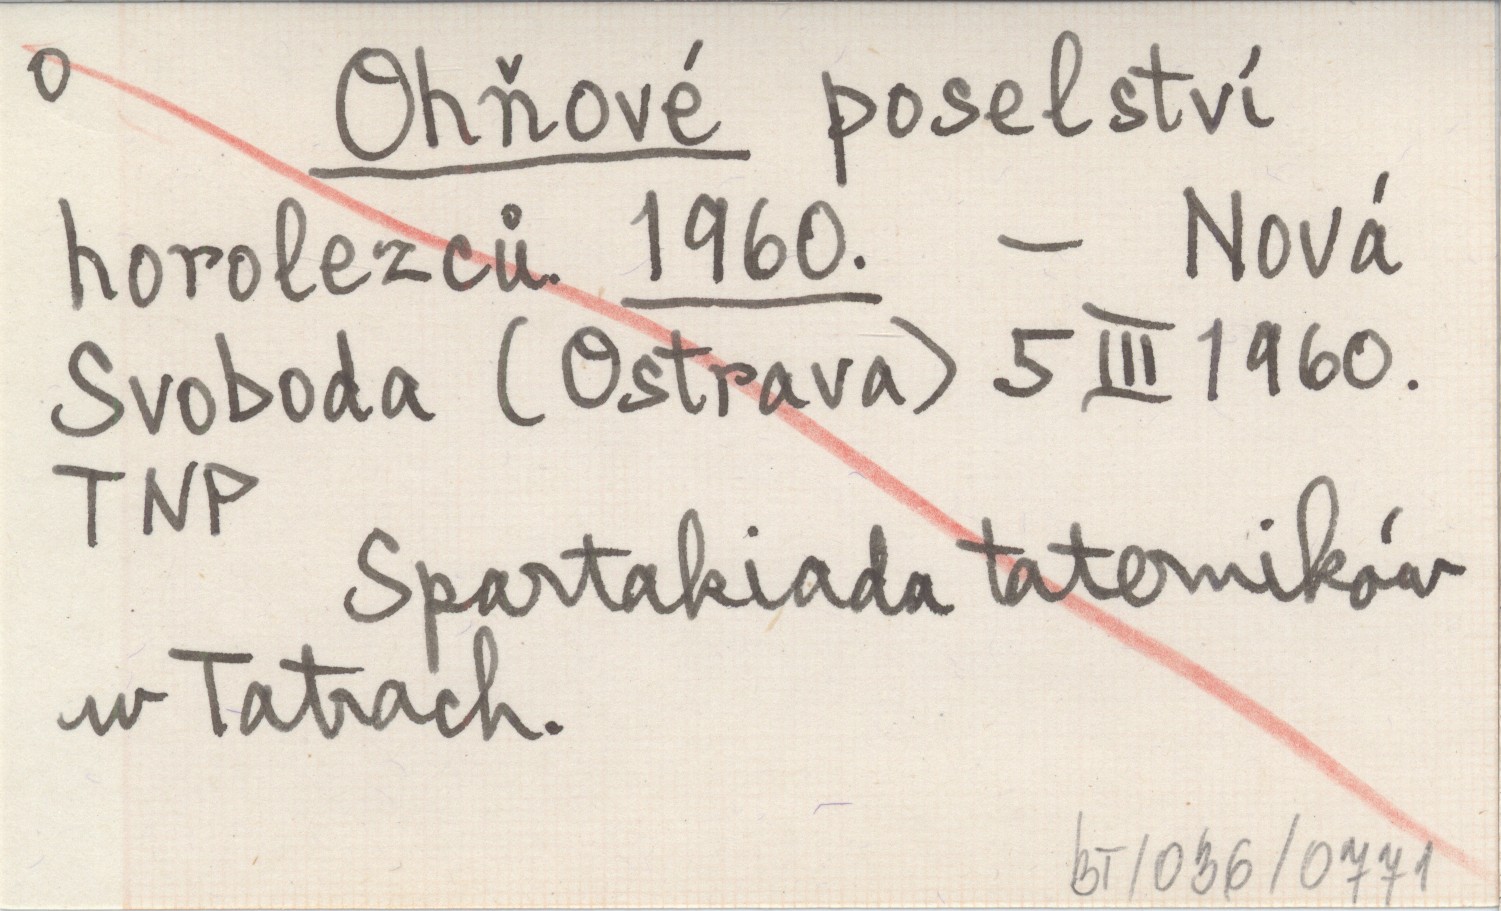 O
Ohňové poselství
horolezců. 1960. — Nová
Svoboda (Ostrava) 5 III 1960.
TNP
Spartakiada taterników
w Tatrach.
BT/036/0771